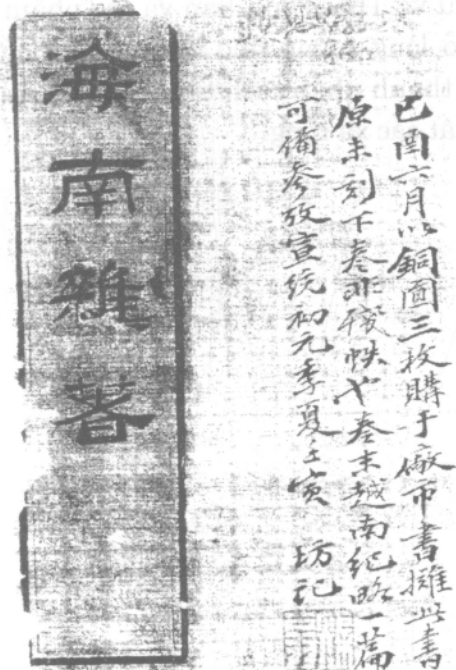 己酉六月以銅圓三枚購于廠市書攤此書
原未刻下卷非殘帙也卷末越南紀略一篇
可備參攷宣統初元季夏壬寅 坊記
海南雜著